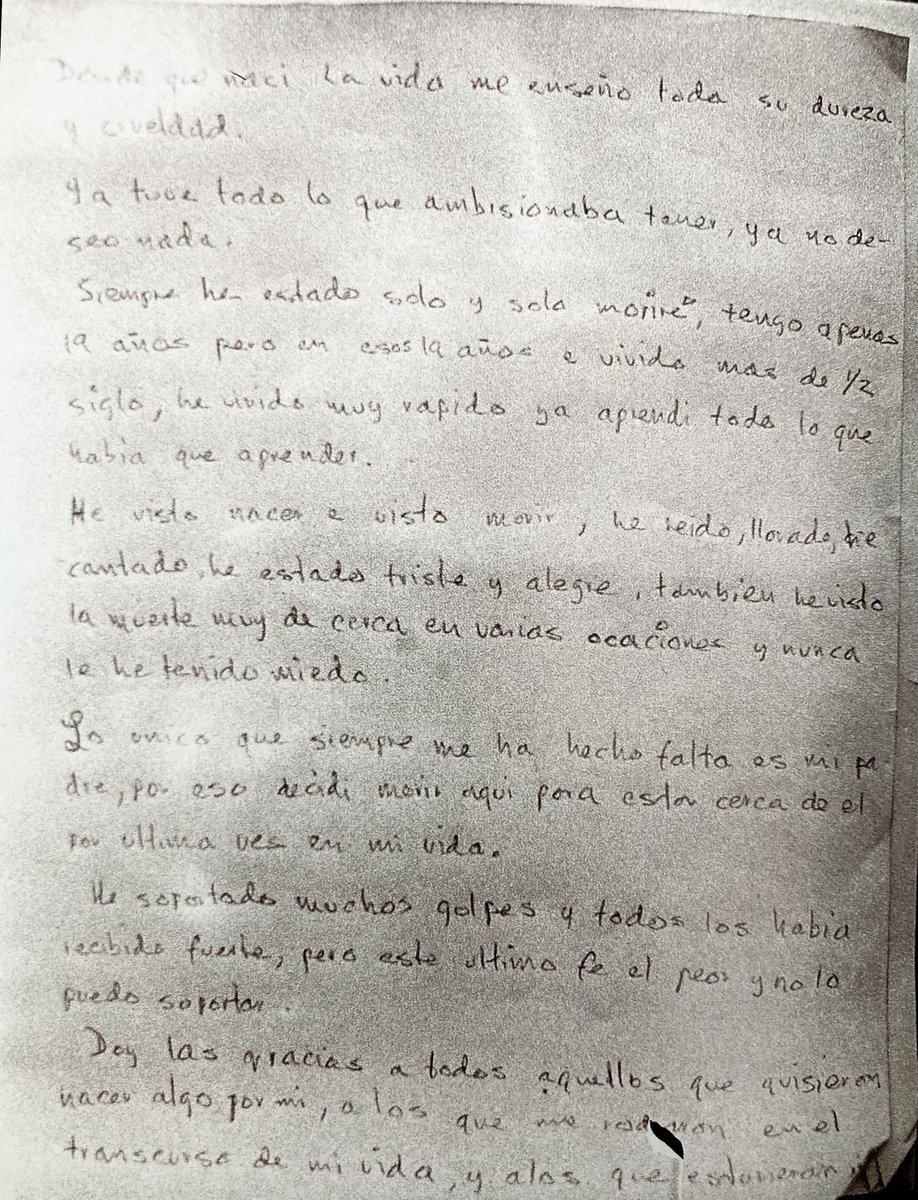 Desde que naci la vida me enseño toda su dureza
y crueldad.
Ya tuve todo lo que ambisionaba tener, ya no de-
seo nada.
Siempre he estado solo y solo morire, tengo apenas
19 años pero en esos 19 años e vivido mas de 1/2
siglo, he vivido muy rapido ya aprendi todo lo que
habia que aprender.
He visto nacer e visto morir, he reido, llorado, he
cantado, he estado triste y alegre, tambien he visto
la muerte muy de cerca en varias ocaciones y nunca
le he tenido miedo.
Lo unico que siempre me ha hecho falta es mi pa-
dre, por eso decidi morir aqui para estar cerca de el
por ultima ves en mi vida.
He soportado muchos golpes y todos los habia
recibido fuerte, pero este ultimo fe el peor y no lo
puedo soportar.
Doy las gracias a todos aquellos que quisieron
hacer algo por mi, a los que me rodearon en el
transcurso de mi vida, y a los que estuvieron